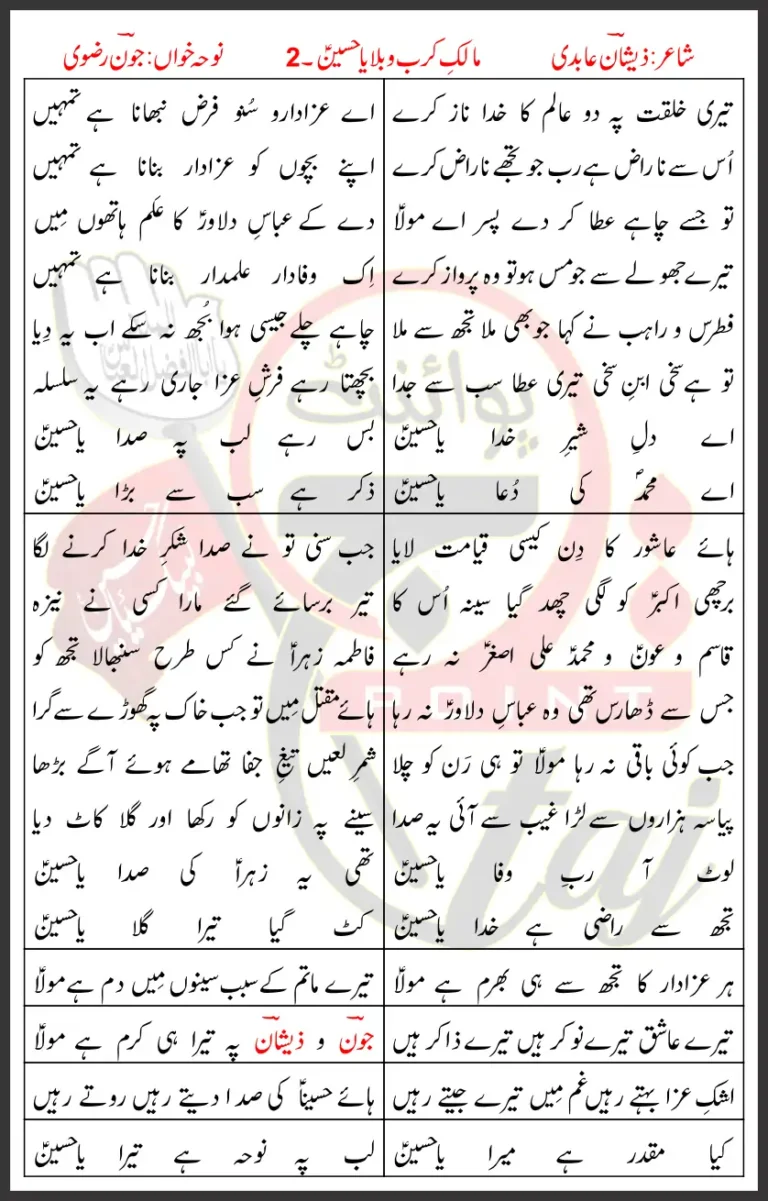 شاعر: ذیشان عابدی مالکِ کرب و بلا یا حسینؑ ۔2 نوحہ خواں: جون رضوی
تیری خلقت پہ دو عالم کا خدا ناز کرے
اُس سے ناراض ہے رب جو تجھے ناراض کرے
تو جسے چاہے عطا کر دے پسر اے مولاؑ
تیرے جھولے سے جو مس ہو تو وہ پرواز کرے
فطرس و راہب نے کہا جو بھی ملا تجھ سے ملا
تو ہے سخی ابنِ سخی تیری عطا سب سے جدا
اے دلِ شیرِ خدا یا حسینؑ
اے محمدؐ کی دُعا یا حسینؑ
اے عزادارو سُنو فرض نبھانا ہے تمہیں
اپنے بچوں کو عزادار بنانا ہے تمہیں
دے کے عباسِ دلاورؑ کا علَم ہاتھوں مِیں
اِک وفادار علمدار بنانا ہے تمہیں
چاہے چلے جیسی ہوا بُجھ نہ سکے اب یہ دِیا
بچھتا رہے فرشِ عزا جاری رہے یہ سلسلہ
بس رہے لب پہ صدا یا حسینؑ
ذکر ہے سب سے بڑا یا حسینؑ
ہائے عاشور کا دِن کیسی قیامت لایا
برچھی اکبرؑ کو لگی چھد گیا سینہ اُس کا
قاسم و عونؑ و محمدؑ علی اصغرؑ نہ رہے
جس سے ڈھارس تھی وہ عباسِ دلاورؑ نہ رہا
جب کوئی باقی نہ رہا مولاؑ تو ہی رَن کو چلا
پیاسہ ہزاروں سے لڑا غیب سے آئی یہ صدا
لوٹ آ ربِ وفا یا حسینؑ
تجھ سے راضی ہے خدا یا حسینؑ
جب سنی تو نے صدا شکرِ خدا کرنے لگا
تیر برسائے گئے مارا کسی نے نیزہ
فاطمہ زہراؑ نے کس طرح سنبھالا تجھ کو
ہائے مقتل مِیں تو جب خاک پہ گھوڑے سے گرا
شمرِ لعیں تیغِ جفا تھامے ہوئے آگے بڑھا
سینے پہ زانوں کو رکھا اور گلا کاٹ دیا
تھی یہ زہراؑ کی صدا یا حسینؑ
کٹ گیا تیرا گلا یا حسینؑ
ہر عزادار کا تجھ سے ہی بھرم ہے مولاؑ
تیرے ماتم کے سبب سینوں مِیں دم ہے مولاؑ
تیرے عاشق تیرے نوکر ہیں تیرے ذاکر ہیں
جون و ذیشان پہ تیرا ہی کرم ہے مولاؑ
اشکِ عزا بہتے رہیں غم مِیں تیرے جیتے رہیں
ہائے حسیناؑ کی صدا دیتے رہیں روتے رہیں
کیا مقدر ہے میرا یا حسینؑ
لب پہ نوحہ ہے تیرا یا حسینؑ
پوائنٹ
ج
POINT
taj